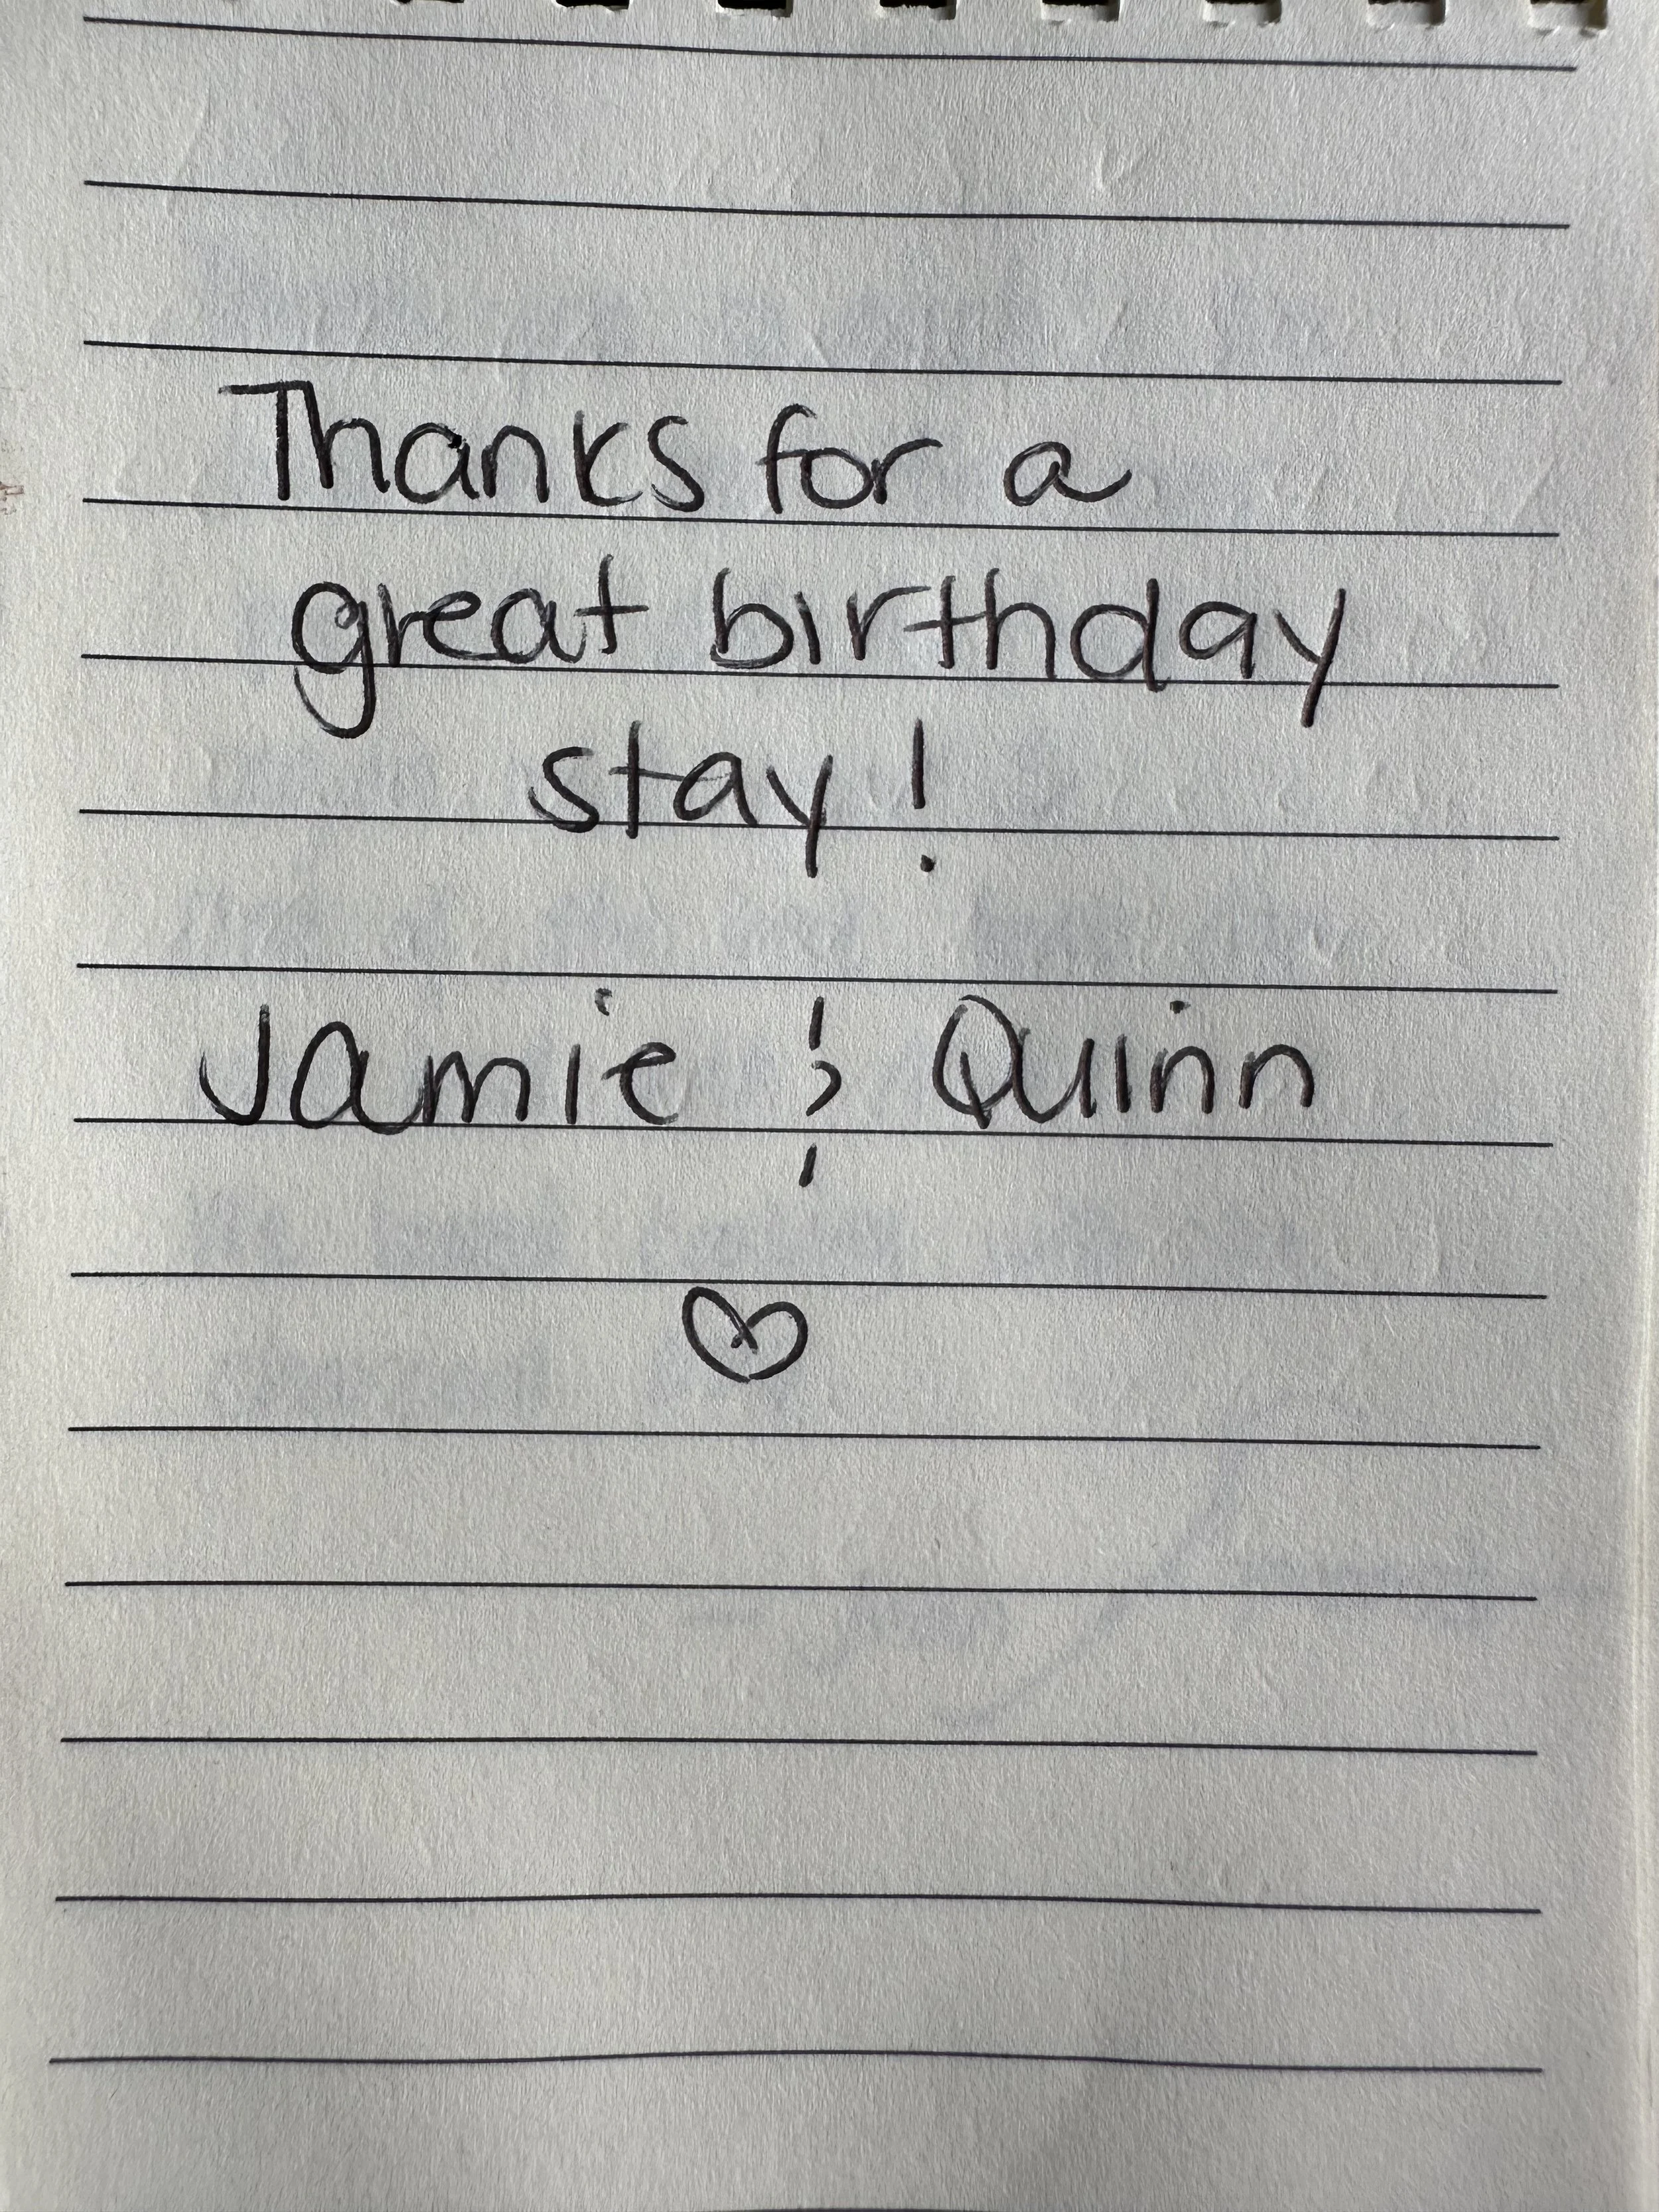 Thanks for a
great birthday
stay!
Jamie & Quinn
♡